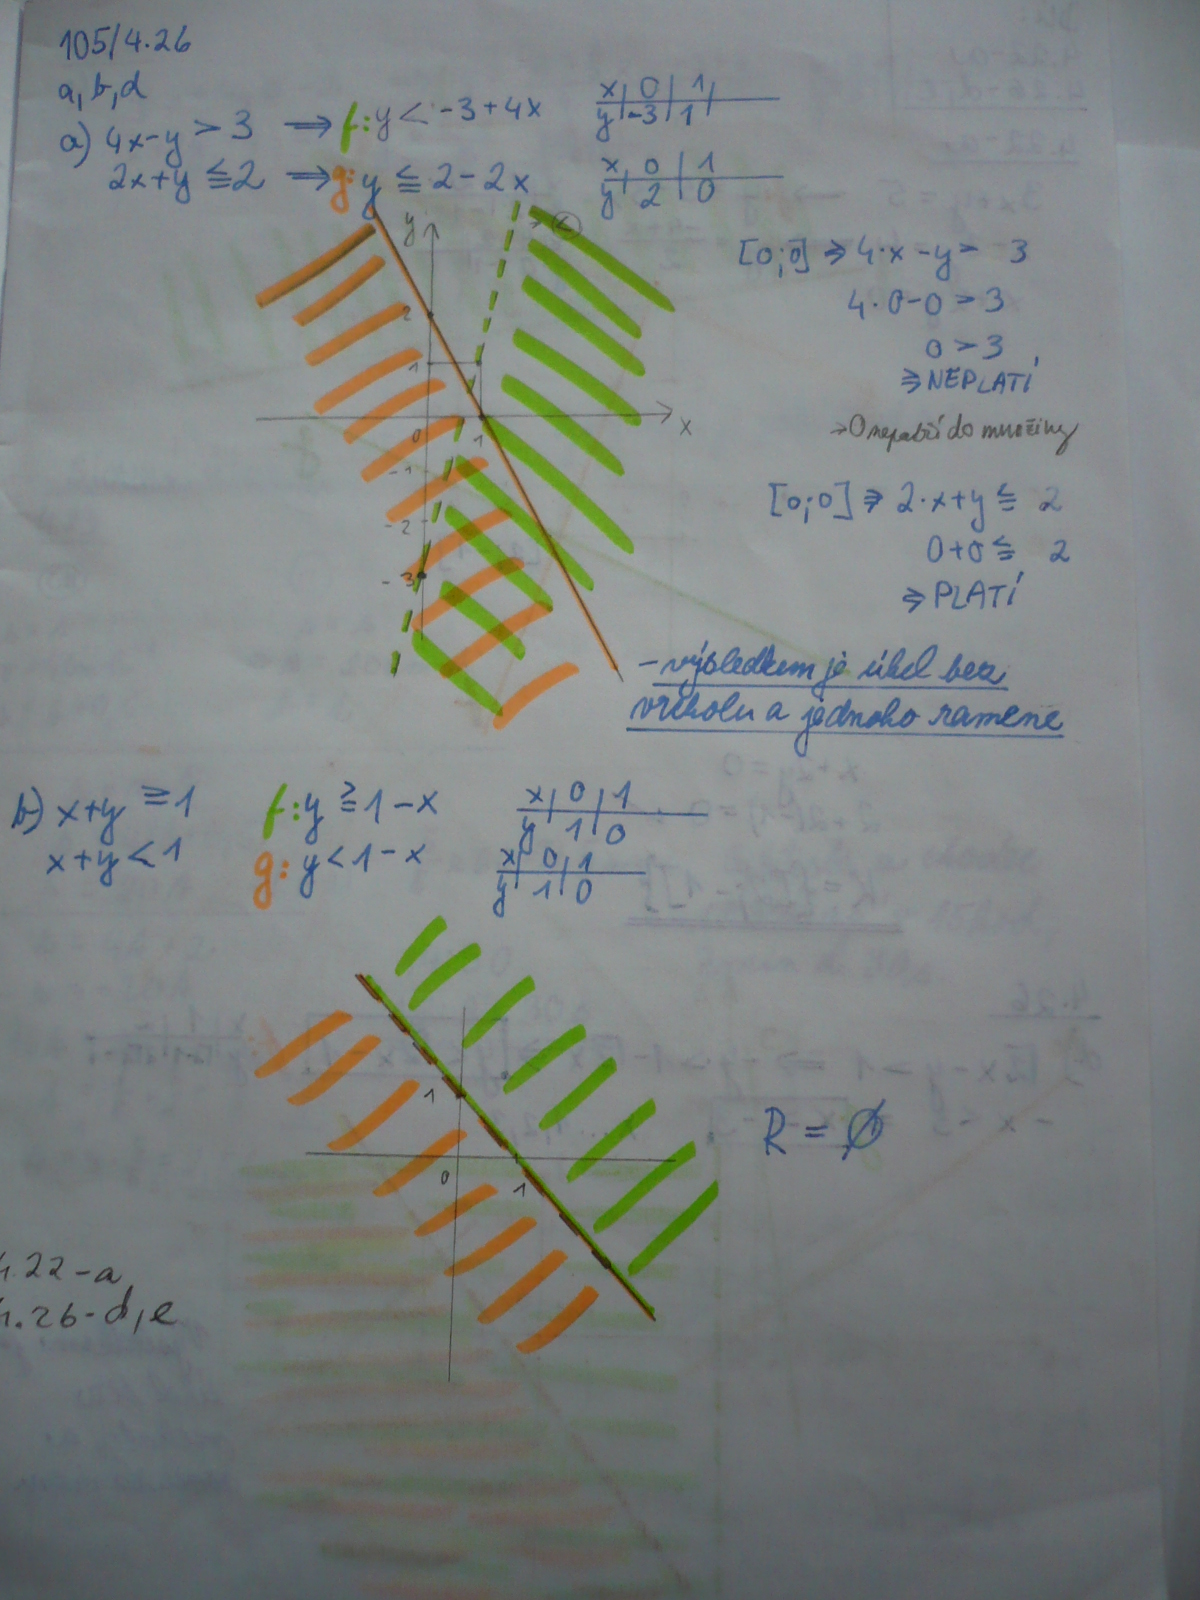 105/4.26
a, b, d
a) 4x-y > 3 ⇒ f: y < -3+4x
x 0 1
y -3 1
2x+y ≦ 2 ⇒ g: y ≦ 2-2x
x 0 1
y 2 0
y
2
1
0 1 x
-1
-2
-3
[0;0] ⇒ 4·x-y > 3
4·0-0 > 3
0 > 3
⇒ NEPLATÍ
→ 0 nepatří do množiny
[0;0] ⇒ 2·x+y ≦ 2
0+0 ≦ 2
⇒ PLATÍ
- výsledkem je úhel bez
vrcholu a jednoho ramene
b) x+y ≧ 1 f: y ≧ 1-x
x 0 1
y 1 0
x+y < 1 g: y < 1-x
x 0 1
y 1 0
1
0 1
R = ∅
4.22-a
4.26-d,e